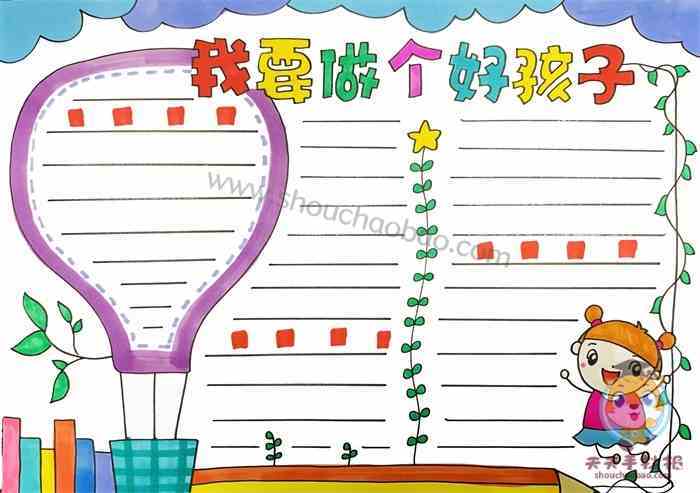 我要做个好孩子
www.shouchaobao.com
天天手抄报
shouchaobao.com